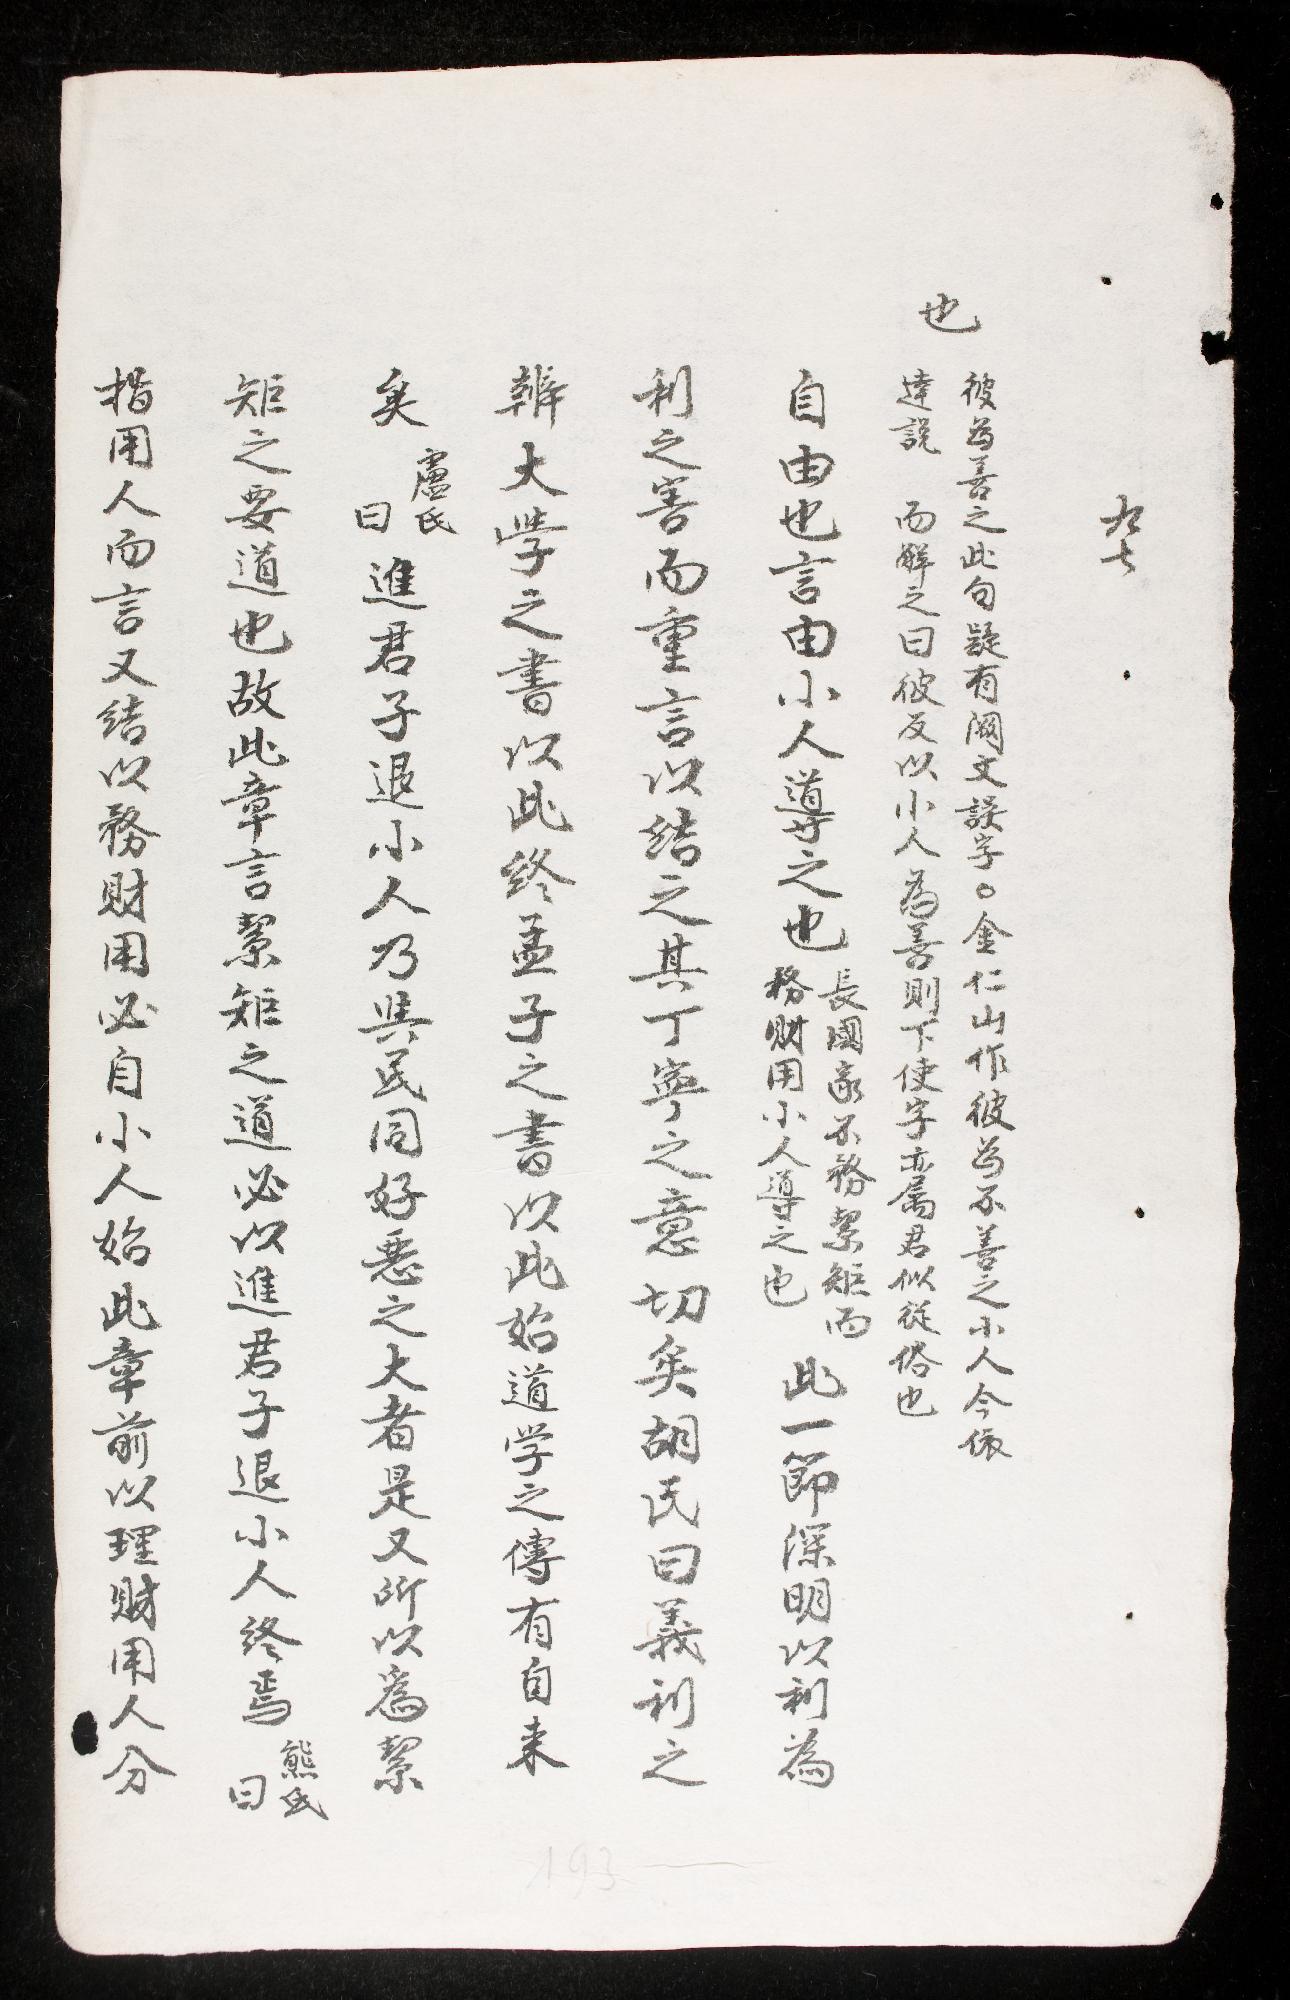 九七
也
彼為善之此句疑有闕文誤字○金仁山作彼為不善之小人今依
達説　而解之曰彼反以小人為善則下使字亦属君似從俗也
自由也言由小人導之也
長國家不務絜矩而
務財用小人導之也
此一節深明以利為
利之害而重言以結之其丁寧之意切矣胡氏曰義利之
辨大学之書以此終孟子之書以此始道学之傳有自来
矣
盧氏
曰
進君子退小人乃與民同好惡之大者是又所以為絜
矩之要道也故此章言絜矩之道必以進君子退小人終焉
熊氏
曰
指用人而言又結以務財用必自小人始此章前以理財用人分
193